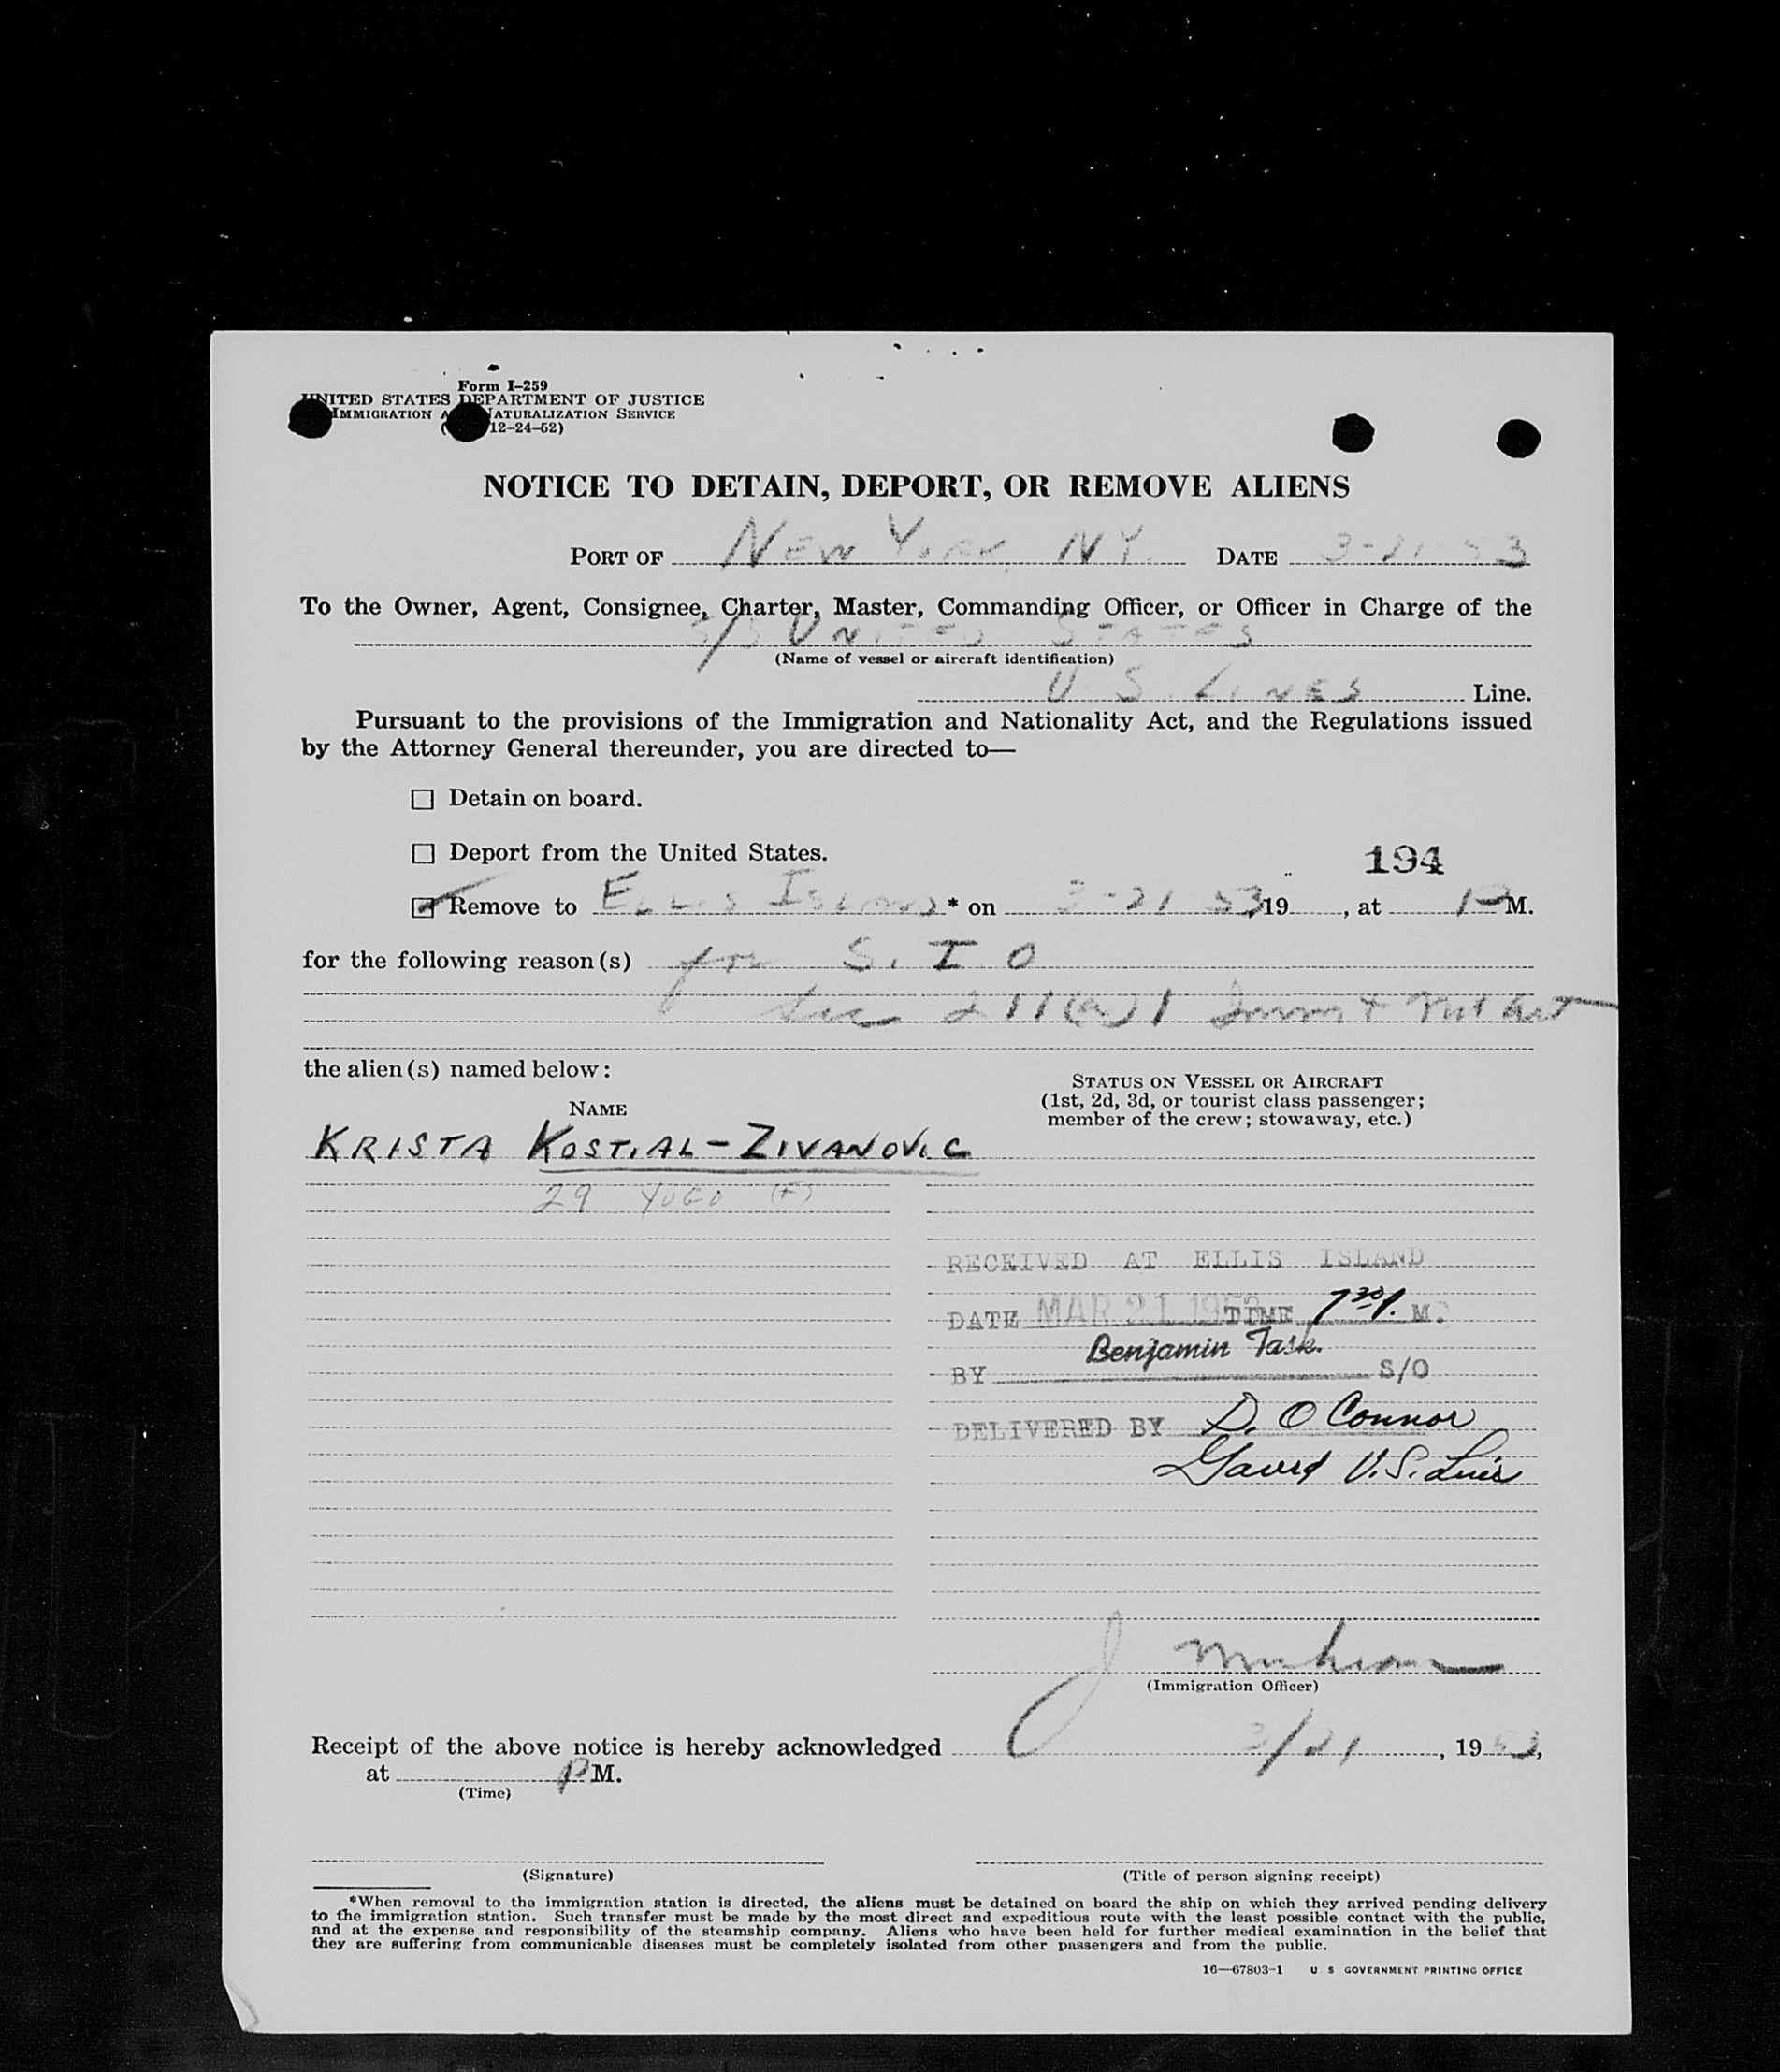 Form I–259
UNITED STATES DEPARTMENT OF JUSTICE
IMMIGRATION A NATURALIZATION SERVICE
( 12–24–52)
NOTICE TO DETAIN, DEPORT, OR REMOVE ALIENS
PORT OF NEW YORK, NY. DATE 3-21 53
To the Owner, Agent, Consignee, Charter, Master, Commanding Officer, or Officer in Charge of the
S/S UNITED STATES
(Name of vessel or aircraft identification)
U S. LINES Line.
Pursuant to the provisions of the Immigration and Nationality Act, and the Regulations issued
by the Attorney General thereunder, you are directed to—
Detain on board.
Deport from the United States.
194
Remove to ELLIS ISLAND * on 3-21 53, 19 , at P M.
for the following reason(s) for S. I O
Sec 211(a)1 Immig + Nat Act
the alien(s) named below:
STATUS ON VESSEL OR AIRCRAFT
(1st, 2d, 3d, or tourist class passenger;
member of the crew; stowaway, etc.)
NAME
KRISTA KOSTIAL-ZIVANOVIC
29 YUGO (F)
RECEIVED AT ELLIS ISLAND
DATE MAR 21 1953 TIME 7 30 P. M.
Benjamin Task.
BY S/O
DELIVERED BY D. O Connor
U.S. Lines
J
(Immigration Officer)
Receipt of the above notice is hereby acknowledged 3/21, 1953,
at P M.
(Time)
(Signature) (Title of person signing receipt)
*When removal to the immigration station is directed, the aliens must be detained on board the ship on which they arrived pending delivery
to the immigration station. Such transfer must be made by the most direct and expeditious route with the least possible contact with the public,
and at the expense and responsibility of the steamship company. Aliens who have been held for further medical examination in the belief that
they are suffering from communicable diseases must be completely isolated from other passengers and from the public.
16—67803-1 U S GOVERNMENT PRINTING OFFICE